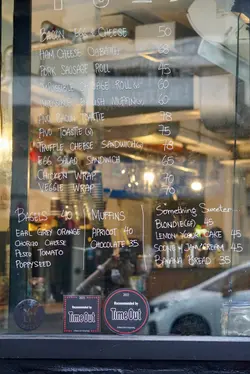 BACON EGG CHEESE 50
HAM CHEESE 
PORK SAUSAGE ROLL 45
SAUSAGE ROLL
MUFFIN(V)
AVO BACON 78
AVO TOAST(V) 75
TRUFFLE CHEESE SANDWICH(V)
EGG SALAD SANDWICH 65
CHICKEN WRAP
VEGGIE WRAP 70
BAGELS 40
EARL GREY ORANGE
CHORIZO CHEESE
PESTO TOMATO
POPPYSEED
MUFFINS
APRICOT 40
CHOCOLATE 35
SOMETHING SWEETER
BLONDIE(GF) 45
LEMON YOGURT CAKE 45
SCONE W JAM/CREAM 45
BANANA BREAD 35
Recommended by
Time Out
Recommended by
Time Out